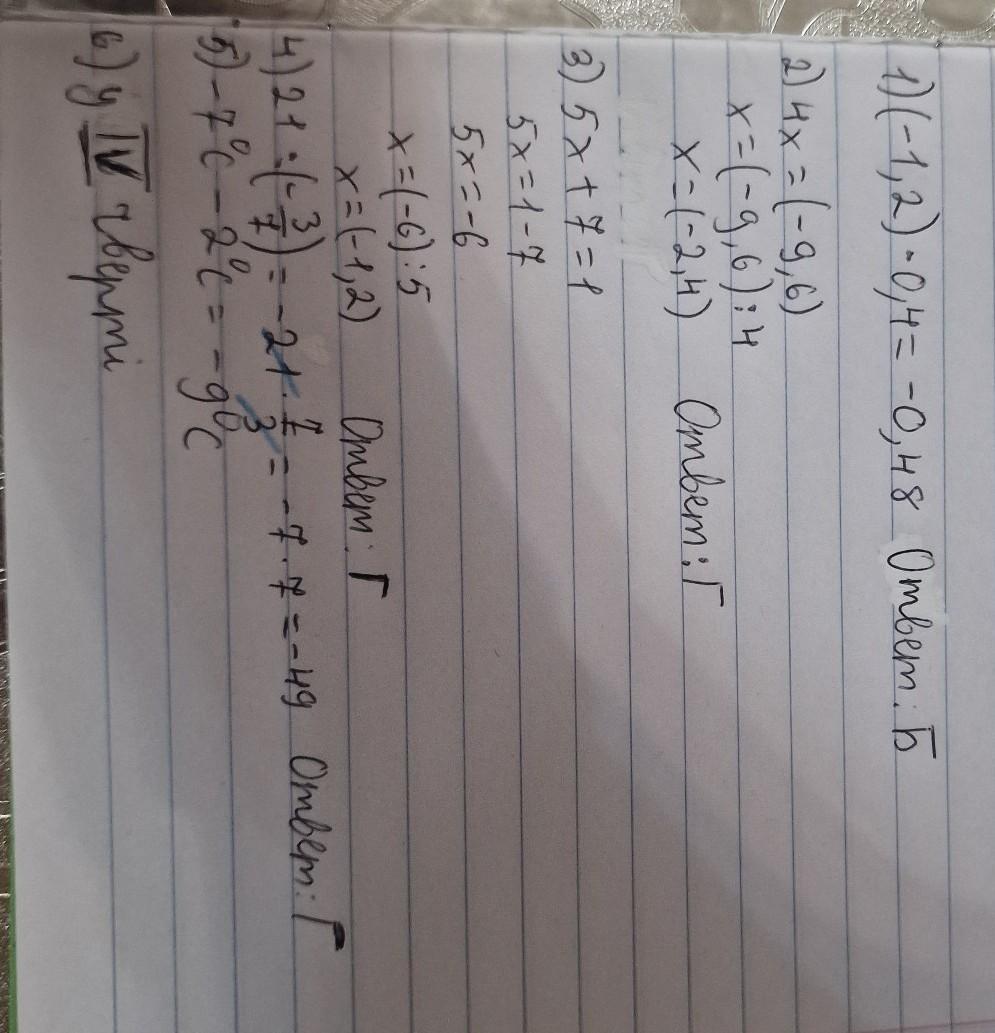 1) (-1,2) · 0,4 = -0,48 Ответ: Б
2) 4x = (-9,6)
x = (-9,6) : 4
x = (-2,4) Ответ: Г
3) 5x + 7 = 1
5x = 1 - 7
5x = -6
x = (-6) : 5
x = (-1,2) Ответ: Г
4) 21 : (-3/7) = -21 · 7/3 = -7 · 7 = -49 Ответ: Г
5) -7°C - 2°C = -9°C
6) у IV чверті